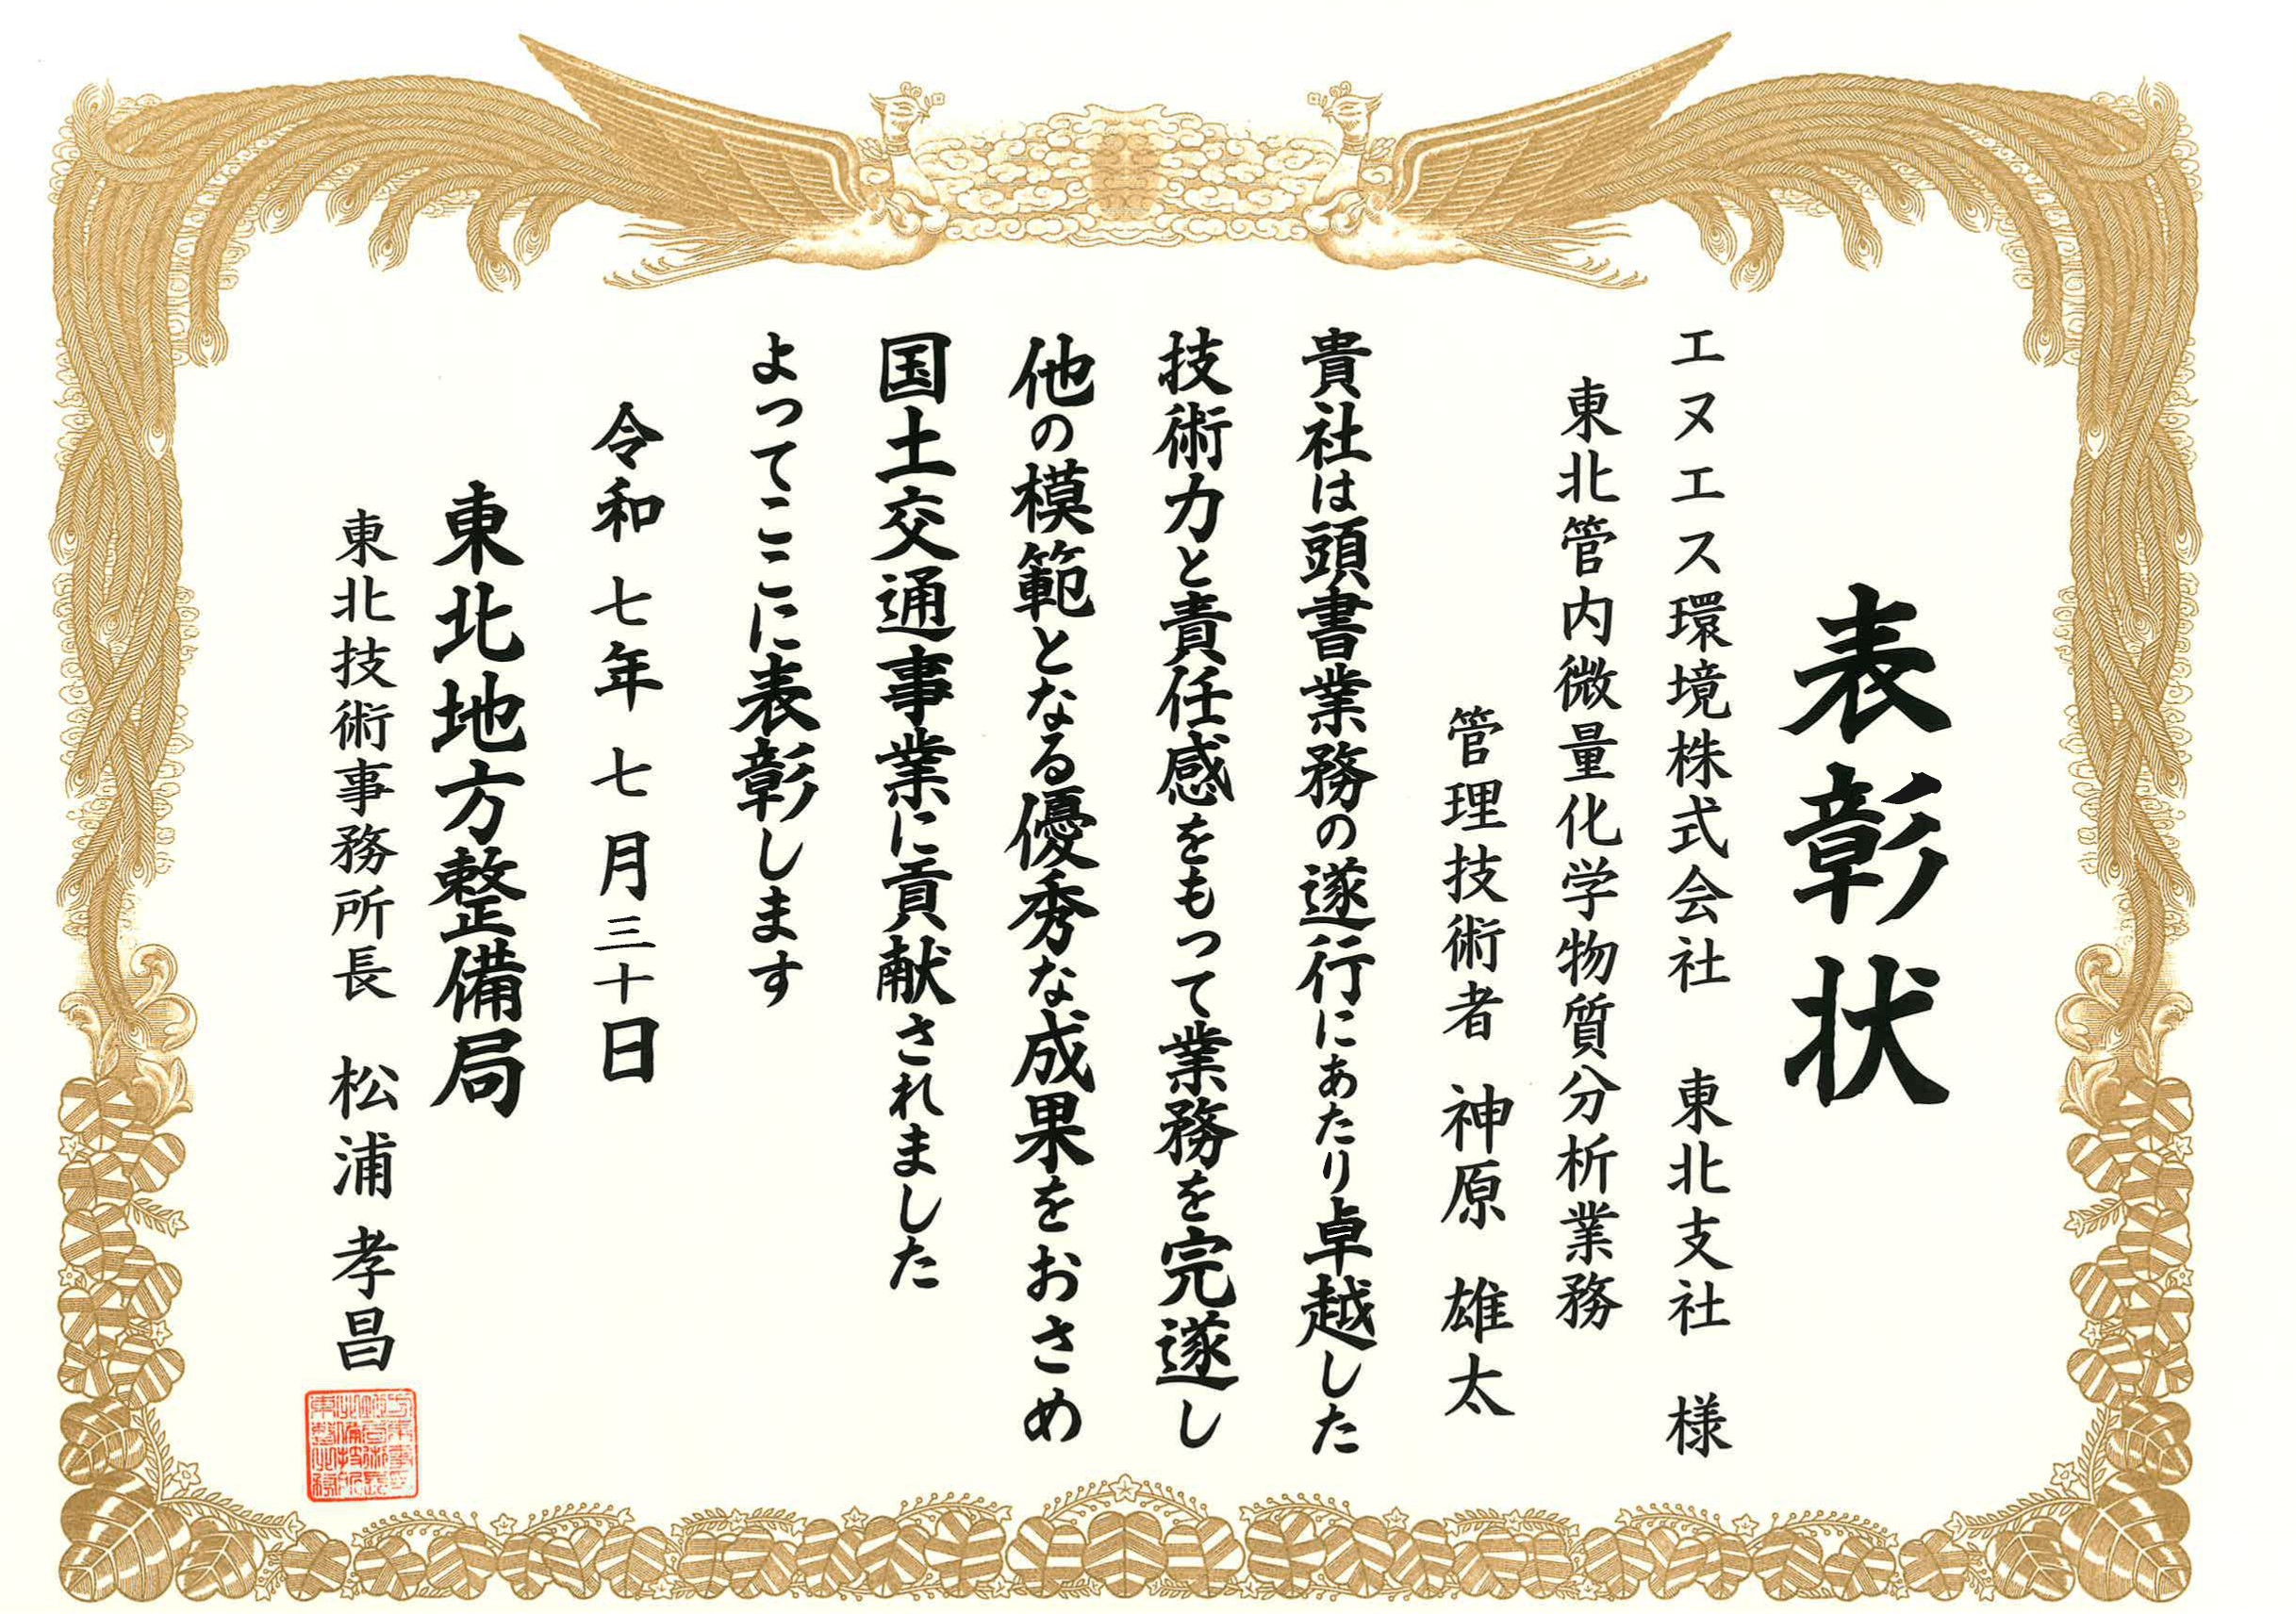 表彰状
エヌエス環境株式会社 東北支社 様
東北管内微量化学物質分析業務
管理技術者 神原 雄太
貴社は頭書業務の遂行にあたり卓越した
技術力と責任感をもって業務を完遂し
他の模範となる優秀な成果をおさめ
国土交通事業に貢献されました
よってここに表彰します
令和 七年 七月三十日
東北地方整備局
東北技術事務所長 松浦 孝昌